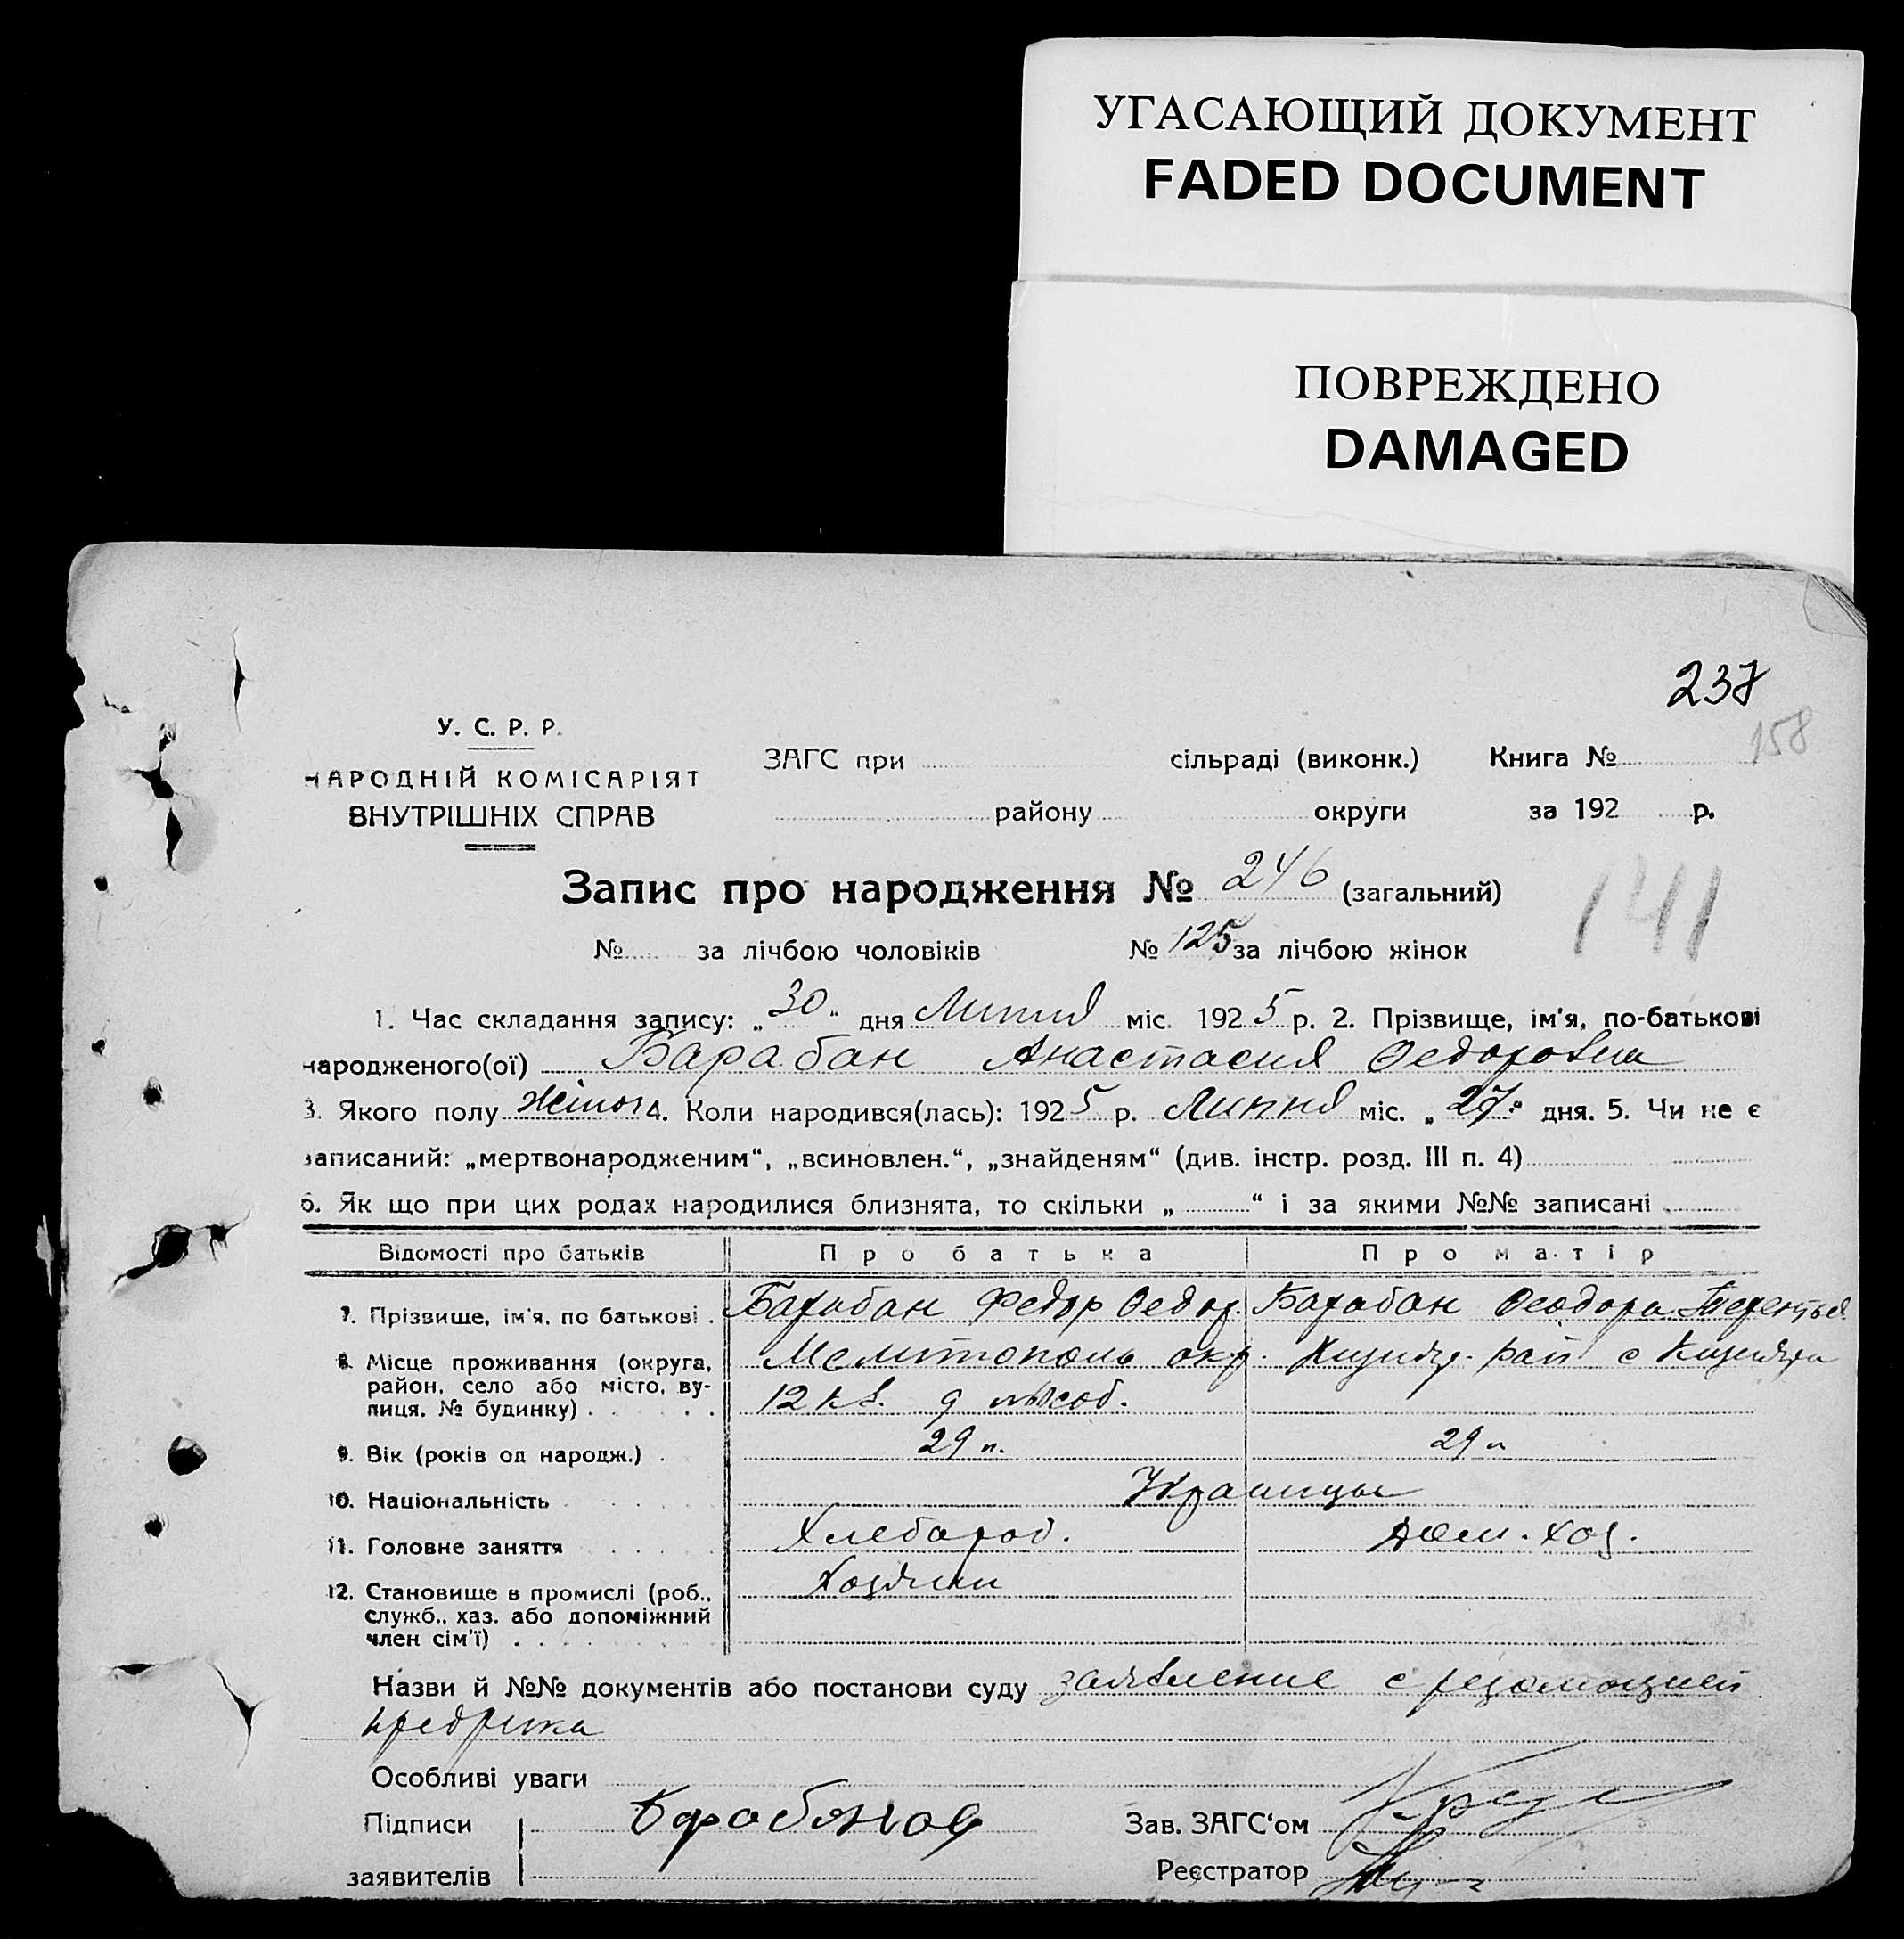 УГАСАЮЩИЙ ДОКУМЕНТ
FADED DOCUMENT
ПОВРЕЖДЕНО
DAMAGED
237
158
У. С. Р. Р.
НАРОДНІЙ КОМІСАРІЯТ
ВНУТРІШНІХ СПРАВ
ЗАГС при сільраді (виконк.) Книга №
району округи за 192 р.
Запис про народження № 246 (загальний)
141
№ за лічбою чоловіків № 125 за лічбою жінок
1. Час складання запису: „30“ дня Липня міс. 1925 р. 2. Прізвище, ім'я, по-батькові
народженого(ої) Барабан Анастасия Федоровна
3. Якого полу жіноч 4. Коли народився(лась): 1925 р. Липня міс. „27“ дня. 5. Чи не є
записаний: „мертвонародженим“, „всиновлен.“, „знайденям“ (див. інстр. розд. III п. 4)
6. Як що при цих родах народилися близнята, то скільки „ “ і за якими №№ записані
Відомості про батьків Про батька Про матір
7. Прізвище, ім'я, по батькові . Барабан Федор Федор. Барабан Феодора Терентьев.
8. Місце проживання (округа, район, село або місто, вулиця, № будинку) . Мелитополь окр. рай с
12 кв. 9
9. Вік (років од народж.) . 29 л. 29 л
10. Національність Украинцы
11. Головне заняття Хлебороб. Дом. хоз.
12. Становище в промислі (роб., Хозяин
служб., хаз. або допоміжний
член сім'ї)
Назви й №№ документів або постанови суду заявление с резолюцией
предрика
Особливі уваги
Підписи Зав. ЗАГС‘ом
заявителів Реєстратор